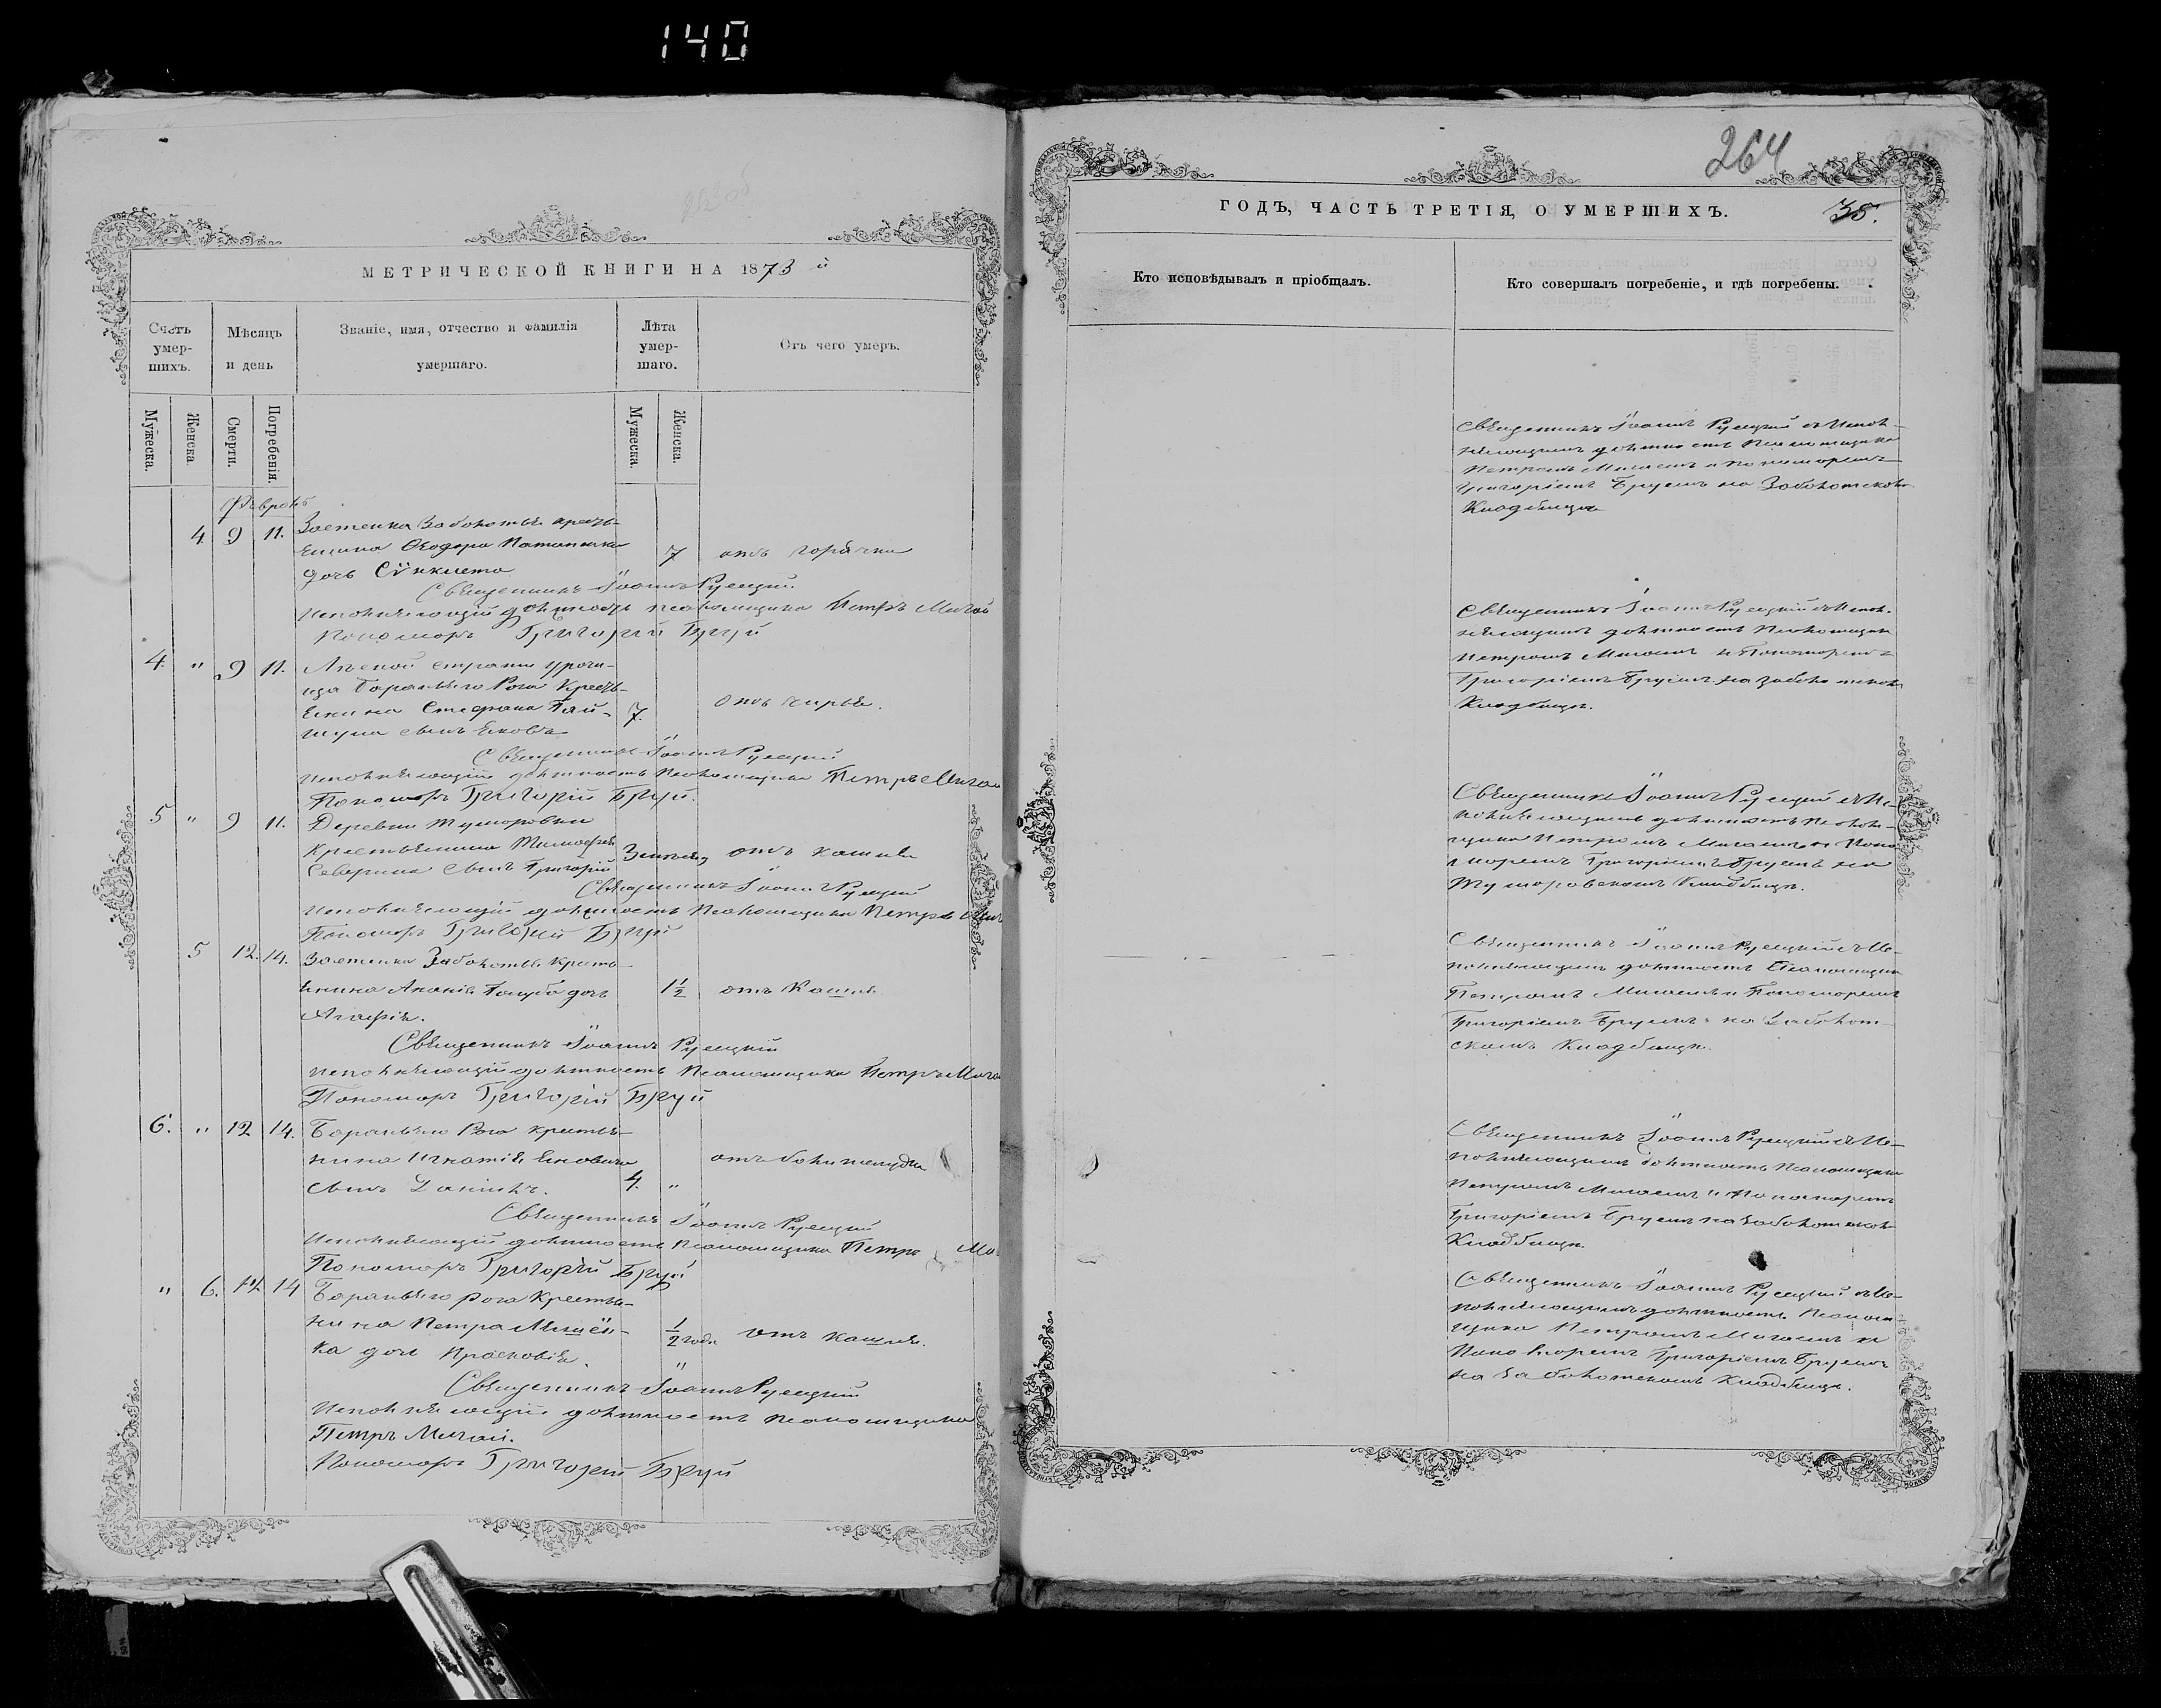 140
264
МЕТРИЧЕСКОЙ КНИГИ НА 1873 й
Счетъ умер-шихъ.
Мѣсяцъ и день
Званіе, имя, отчество и фамилія умершаго.
Лѣта умер-шаго.
Отъ чего умеръ.
Мужеска.
Женска.
Смерти.
Погребенія.
Мужеска.
Женска.
Февраль
4 9 11. Застенка Заболотья кресть-
янина Ѳеодора
дочь 7 отъ горячки
Священникъ Іоаннъ Рущкій
Исполняющій должность псаломщика Петръ Мигай
Пономарь Григорій Бруй
4. " 9 11. Лѣсной стражи урочи-
ща Бараньяго Рога Кресть-
янина Стефана Гай-
шуна сынъ Іаковъ 7. отъ кирья.
Священникъ Іоаннъ
Исполняющій должность Псаломщика Петръ Мигай
Пономарь Григорій Бруй.
5 " 9 11. Деревни Тумаровки
Крестьянина Тимоѳея
Северина сынъ Григорій отъ кашля
Священникъ Іоаннъ
Исполняющій должность Псаломщика Петръ
Пономарь Григорій Бруй
5 12. 14. Застенка Заболотья Кресть-
янина Ананія Голуба дочь 1 1/2 отъ Кашля
Агафія.
Священникъ Іоаннъ
Исполняющій должность Псаломщика Петръ
Пономарь Григорій Бруй
6. " 12 14. Бараньяго Рога крестья-
нина Игнатія отъ боли желудка
сынъ Даніилъ. 4. "
Священникъ Іоаннъ
Исполняющій должность Псаломщика Петръ
Пономарь Григорій Бруй
" 6. 12 14 Бараньяго рога Крестья-
нина Петра 1/2 года отъ кашля.
ка дочь Прасковія. "
Священникъ Іоаннъ
Исполняющій должность псаломщика
Петръ Мигай.
Пономарь Григорій Бруй
ГОДЪ, ЧАСТЬ ТРЕТІЯ, О УМЕРШИХЪ. 38.
Кто исповѣдывалъ и пріобщалъ.
Кто совершалъ погребеніе, и гдѣ погребены.
Священникъ Іоаннъ съ Испол-
няющимъ должность Псаломщика
Петромъ Мигаемъ и пономаремъ
Григоріемъ Бруемъ на Заболотскомъ
Кладбищѣ
Священникъ Іоаннъ съ Испол-
няющимъ должность Псаломщика
Петромъ Мигаемъ и Пономаремъ
Григоріемъ Бруемъ на Заболотскомъ
Кладбищѣ.
Священникъ Іоаннъ съ Ис-
полняющимъ должность Псалом-
щика Петромъ Мигаемъ и Поно-
маремъ Григоріемъ Бруемъ на
Тумаровскомъ Кладбищѣ.
Священникъ Іоаннъ съ Ис-
полняющимъ должность Псаломщика
Петромъ Мигаемъ и Пономаремъ
Григоріемъ Бруемъ на Заболот-
скомъ Кладбищѣ.
Священникъ Іоаннъ съ Ис-
полняющимъ должность Псаломщика
Петромъ Мигаемъ и Пономаремъ
Григоріемъ Бруемъ на Заболотскомъ
Кладбищѣ.
Священникъ Іоаннъ съ Ис-
полняющимъ должность Псалом-
щика Петромъ Мигаемъ и
Пономаремъ Григоріемъ Бруемъ
на Заболотскомъ Кладбищѣ.